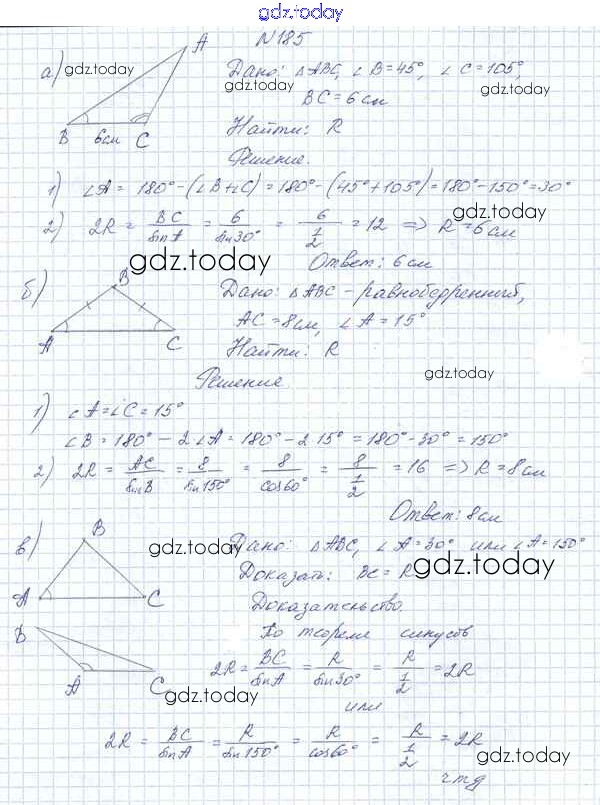 gdz.today
N185
а) gdz.today
A
B 6см C
Дано: △ABC, ∠B=45°, ∠C=105°,
gdz.today
gdz.today
BC=6см
Найти: R
Решение.
1) ∠A = 180°-(∠B+∠C)=180°-(45°+105°)=180°-150°=30°
2) 2R = BC/sinA = 6/sin30° = 6/(1/2) = 12 => R=6см
gdz.today
Ответ: 6см
gdz.today
б)
B
A C
Дано: △ABC - равнобедренный,
AC=8см, ∠A=15°
Найти: R
gdz.today
Решение
1) ∠A=∠C=15°
∠B = 180° - 2·∠A = 180° - 2·15° = 180°-30° = 150°
2) 2R = AC/sinB = 8/sin150° = 8/cos60° = 8/(1/2) = 16 => R=8см
Ответ: 8см
в)
B
A C
gdz.today
Дано: △ABC, ∠A=30° или ∠A=150°
Доказать: BC=R
gdz.today
Доказательство.
B
A C
По теореме синусов
2R = BC/sinA = R/sin30° = R/(1/2) = 2R
gdz.today
или
2R = BC/sinA = R/sin150° = R/cos60° = R/(1/2) = 2R
gdz.today
чтд